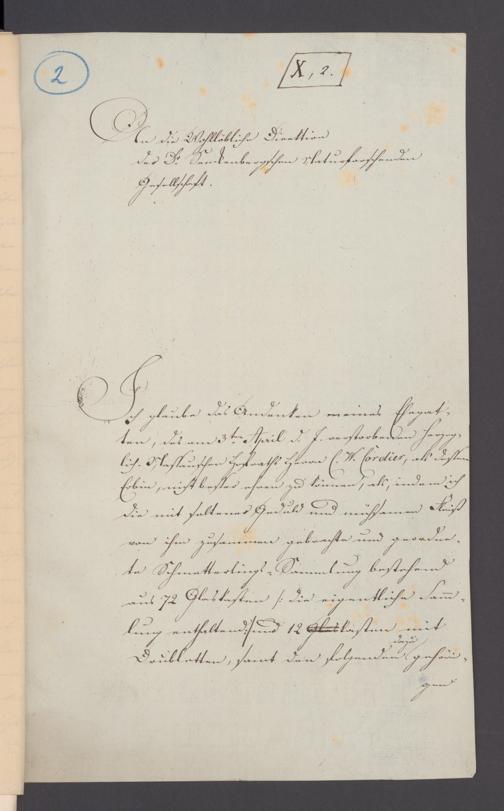 2
X, 2.
An die Wohllöbliche Direktion
des Dr. Senckenbergschen Naturforschenden
Gesellschaft.
Ich glaube das Andenken meines Ehegat-
ten, des am 3ten April d. J. verstorbenen Herzog-
lich. Nassauischen Hofraths Herrn C. W. Cordier, als dessen
Erbin, nicht besser ehren zu können, als, indem ich
die mit seltener Geduld und mühsamen Fleiß
von ihm zusammen gebrachte und geordne-
te Schmetterlings-Sammlung bestehend
aus 72 Glaskasten /: die eigentliche Samm-
lung enthaltend :/ und 12 Kasten mit
Doubletten, samt den folgenden dazu gehöri-
gen